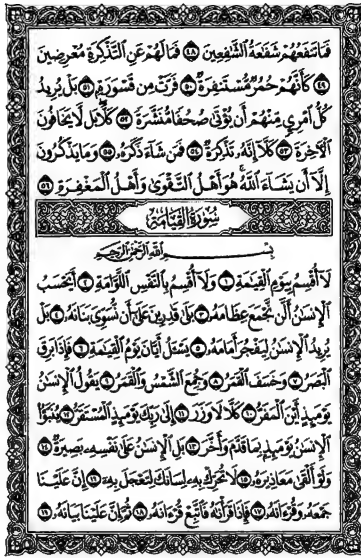 فَمَا تَنفَعُهُمْ شَفَاعَةُ الشَّافِعِينَ ٤٨ فَمَا لَهُمْ عَنِ التَّذْكِرَةِ مُعْرِضِينَ
٤٩ كَأَنَّهُمْ حُمُرٌ مُّسْتَنفِرَةٌ ٥٠ فَرَّتْ مِن قَسْوَرَةٍ ٥١ بَلْ يُرِيدُ
كُلُّ امْرِئٍ مِّنْهُمْ أَن يُؤْتَىٰ صُحُفًا مُّنَشَّرَةً ٥٢ كَلَّا بَل لَّا يَخَافُونَ
الْآخِرَةَ ٥٣ كَلَّا إِنَّهُ تَذْكِرَةٌ ٥٤ فَمَن شَاءَ ذَكَرَهُ ٥٥ وَمَا يَذْكُرُونَ
إِلَّا أَن يَشَاءَ اللَّهُ هُوَ أَهْلُ التَّقْوَىٰ وَأَهْلُ الْمَغْفِرَةِ ٥٦
سُورَةُ القِيَامَةِ
بِسْمِ اللَّهِ الرَّحْمَٰنِ الرَّحِيمِ
لَا أُقْسِمُ بِيَوْمِ الْقِيَامَةِ ١ وَلَا أُقْسِمُ بِالنَّفْسِ اللَّوَّامَةِ ٢ أَيَحْسَبُ
الْإِنسَانُ أَلَّن نَّجْمَعَ عِظَامَهُ ٣ بَلَىٰ قَادِرِينَ عَلَىٰ أَن نُّسَوِّيَ بَنَانَهُ ٤ بَلْ
يُرِيدُ الْإِنسَانُ لِيَفْجُرَ أَمَامَهُ ٥ يَسْأَلُ أَيَّانَ يَوْمُ الْقِيَامَةِ ٦ فَإِذَا بَرِقَ
الْبَصَرُ ٧ وَخَسَفَ الْقَمَرُ ٨ وَجُمِعَ الشَّمْسُ وَالْقَمَرُ ٩ يَقُولُ الْإِنسَانُ
يَوْمَئِذٍ أَيْنَ الْمَفَرُّ ١٠ كَلَّا لَا وَزَرَ ١١ إِلَىٰ رَبِّكَ يَوْمَئِذٍ الْمُسْتَقَرُّ ١٢ يُنَبَّأُ
الْإِنسَانُ يَوْمَئِذٍ بِمَا قَدَّمَ وَأَخَّرَ ١٣ بَلِ الْإِنسَانُ عَلَىٰ نَفْسِهِ بَصِيرَةٌ ١٤
وَلَوْ أَلْقَىٰ مَعَاذِيرَهُ ١٥ لَا تُحَرِّكْ بِهِ لِسَانَكَ لِتَعْجَلَ بِهِ ١٦ إِنَّ عَلَيْنَا
جَمْعَهُ وَقُرْآنَهُ ١٧ فَإِذَا قَرَأْنَاهُ فَاتَّبِعْ قُرْآنَهُ ١٨ ثُمَّ إِنَّ عَلَيْنَا بَيَانَهُ ١٩